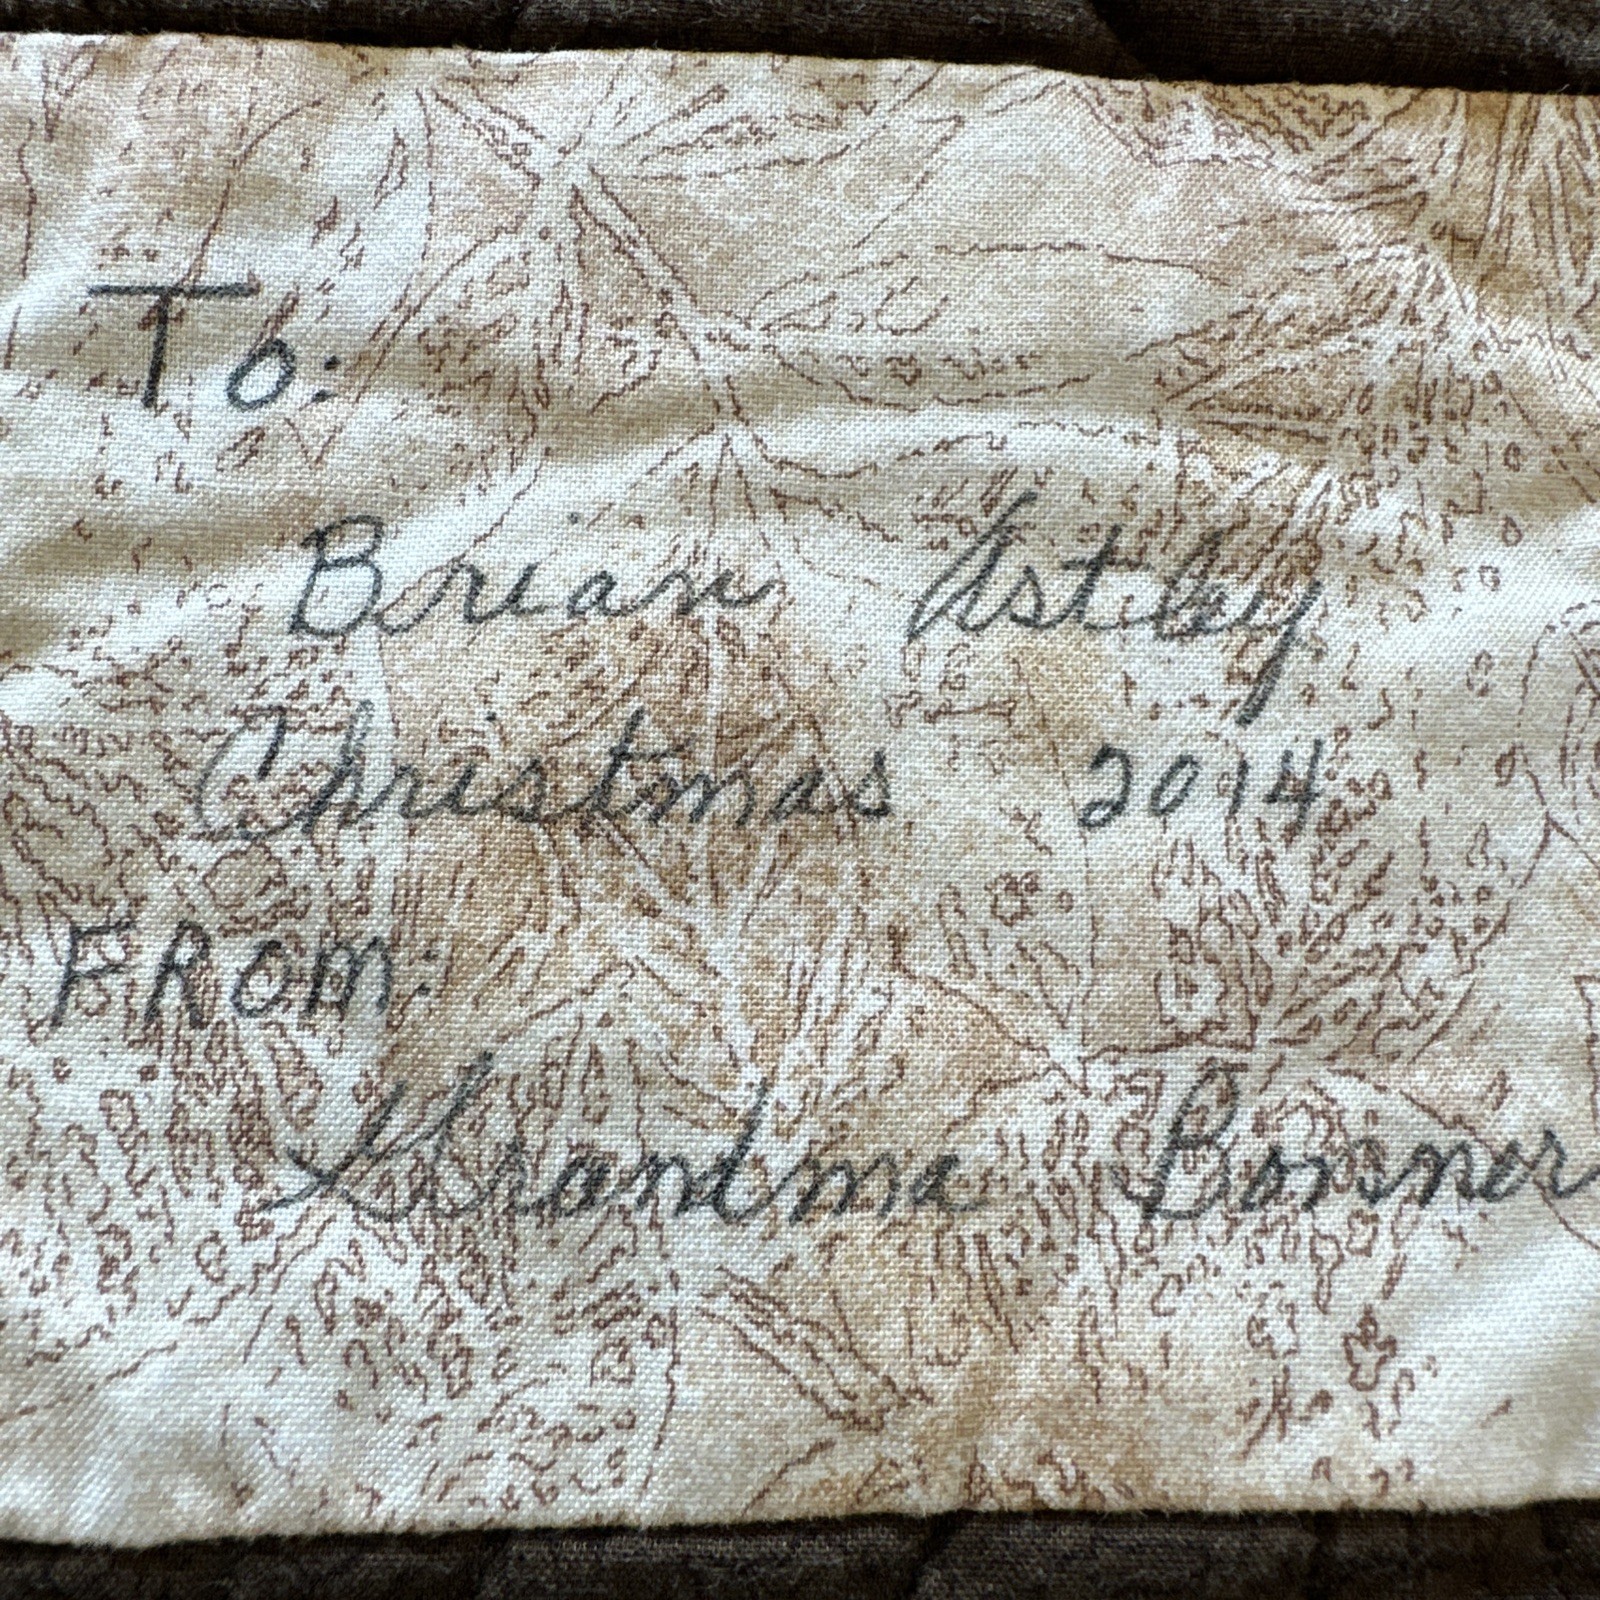 To:
Brian Astley
Christmas 2014
FROM:
Grandma Bonner